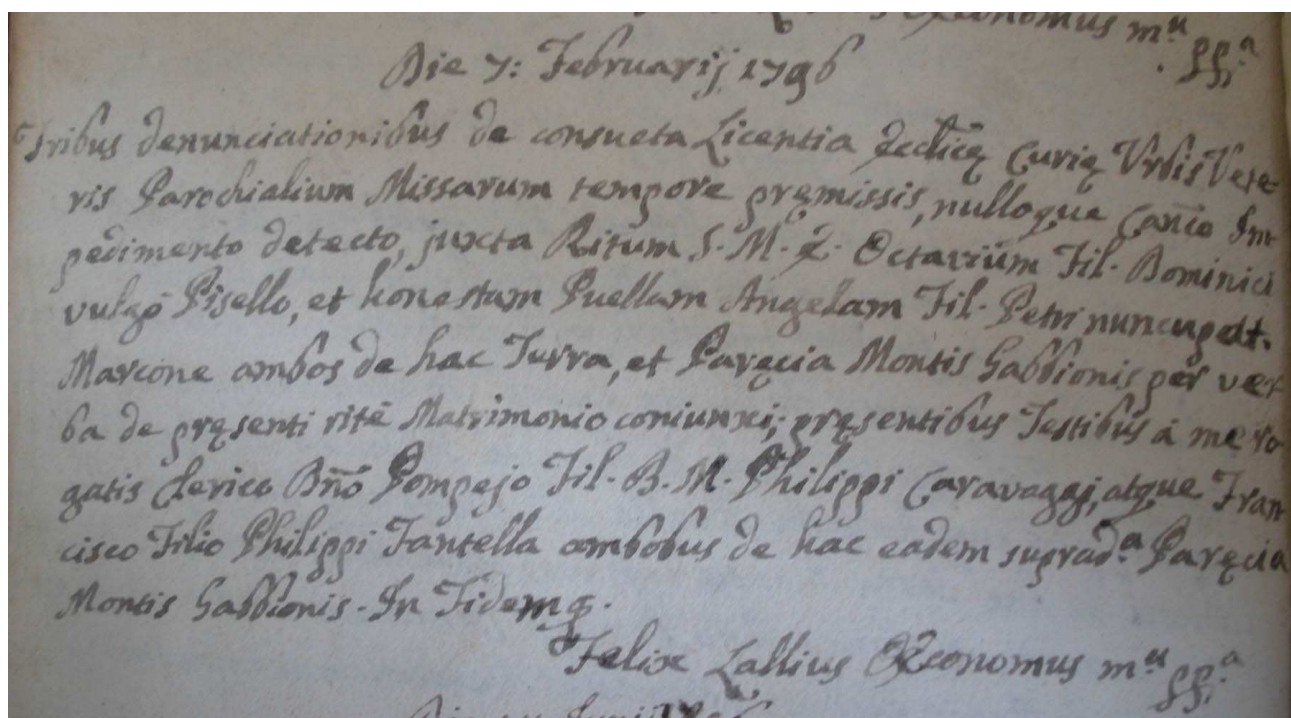 Œconomus m.ᵘ pp.ᵃ
Die 7: Februarij 1796
Tribus denunciationibus de consueta Licentia Eccl͞icę Curię Urbis Vete-
ris Parochialium Missarum tempore pręmissis, nulloque Can͞co Im-
pedimento detecto, juxta Ritum S. M. E. Octavium Fil. Dominici
vulgo Pisello, et honestam Puellam Angelam Fil. Petri nuncupat.
Marcone ambos de hac Terra, et Paręcia Montis Gabbionis per ver-
ba de pręsenti ritè Matrimonio coniunxi; pręsentibus Testibus à me ro-
gatis Clerico Dn͞o Pompejo Fil. B. M. Philippi Caravaggi, atque Fran-
cisco Filio Philippi Fantella ambobus de hac eadem suprad.ᵃ Paręcia
Montis Gabbionis. In Fidemq.
Felix Lallius Œconomus m.ᵘ pp.ᵃ